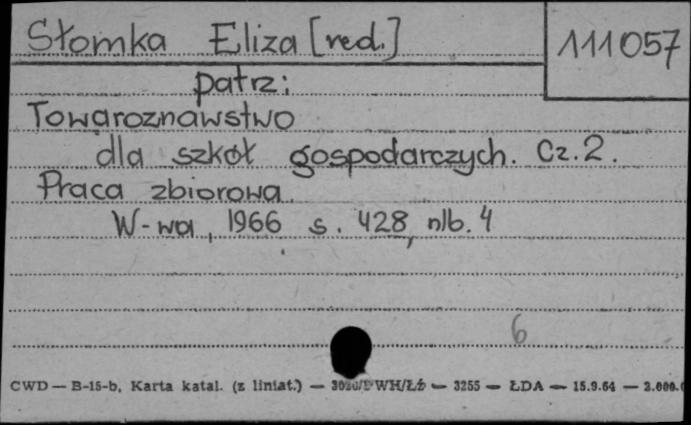 Słomka Eliza [red.]
111057
patrz:
Towaroznawstwo
dla szkół gospodarczych. Cz. 2.
Praca zbiorowa.
W-wa, 1966 s. 428, nlb. 4
6
CWD — B-15-b, Karta katal. (z liniat.) — WH/Łż — 3255 — ŁDA — 15.9.64 — 2.000.0